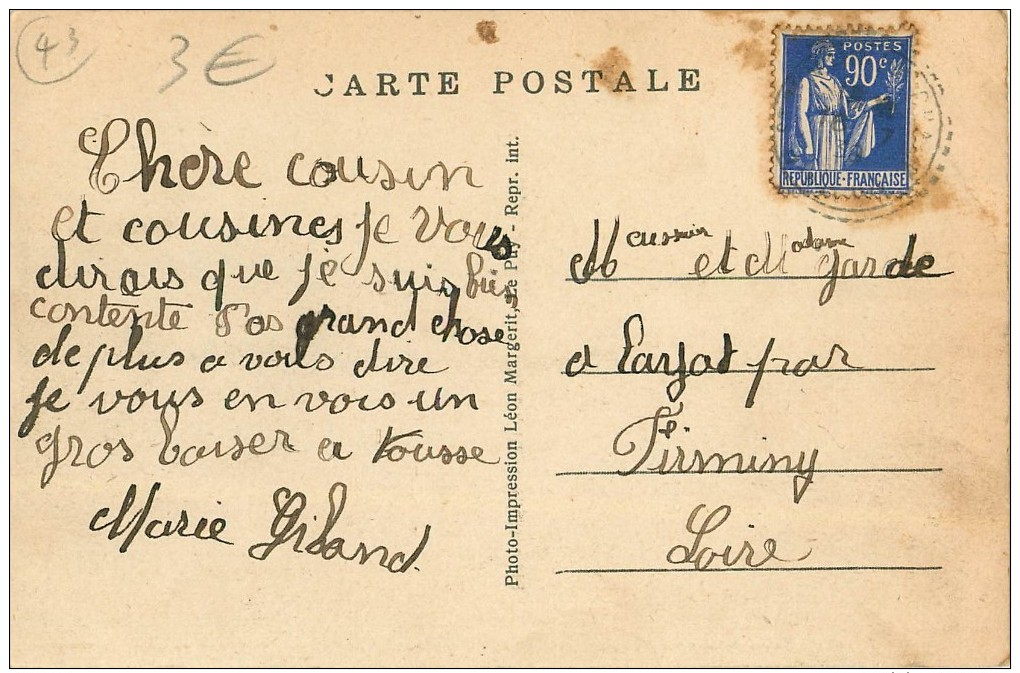 43
3€
CARTE POSTALE
POSTES
90c
REPUBLIQUE-FRANCAISE
Chere cousin
et cousines je vous
dirais que je suis bien
contente Pas grand chose
de plus a vous dire
je vous en vois un
gros baiser a tousse
Marie
Photo-Impression Léon Margerit, Le Puy - Repr. int.
M et Madame Garde
a par
Firminy
Loire